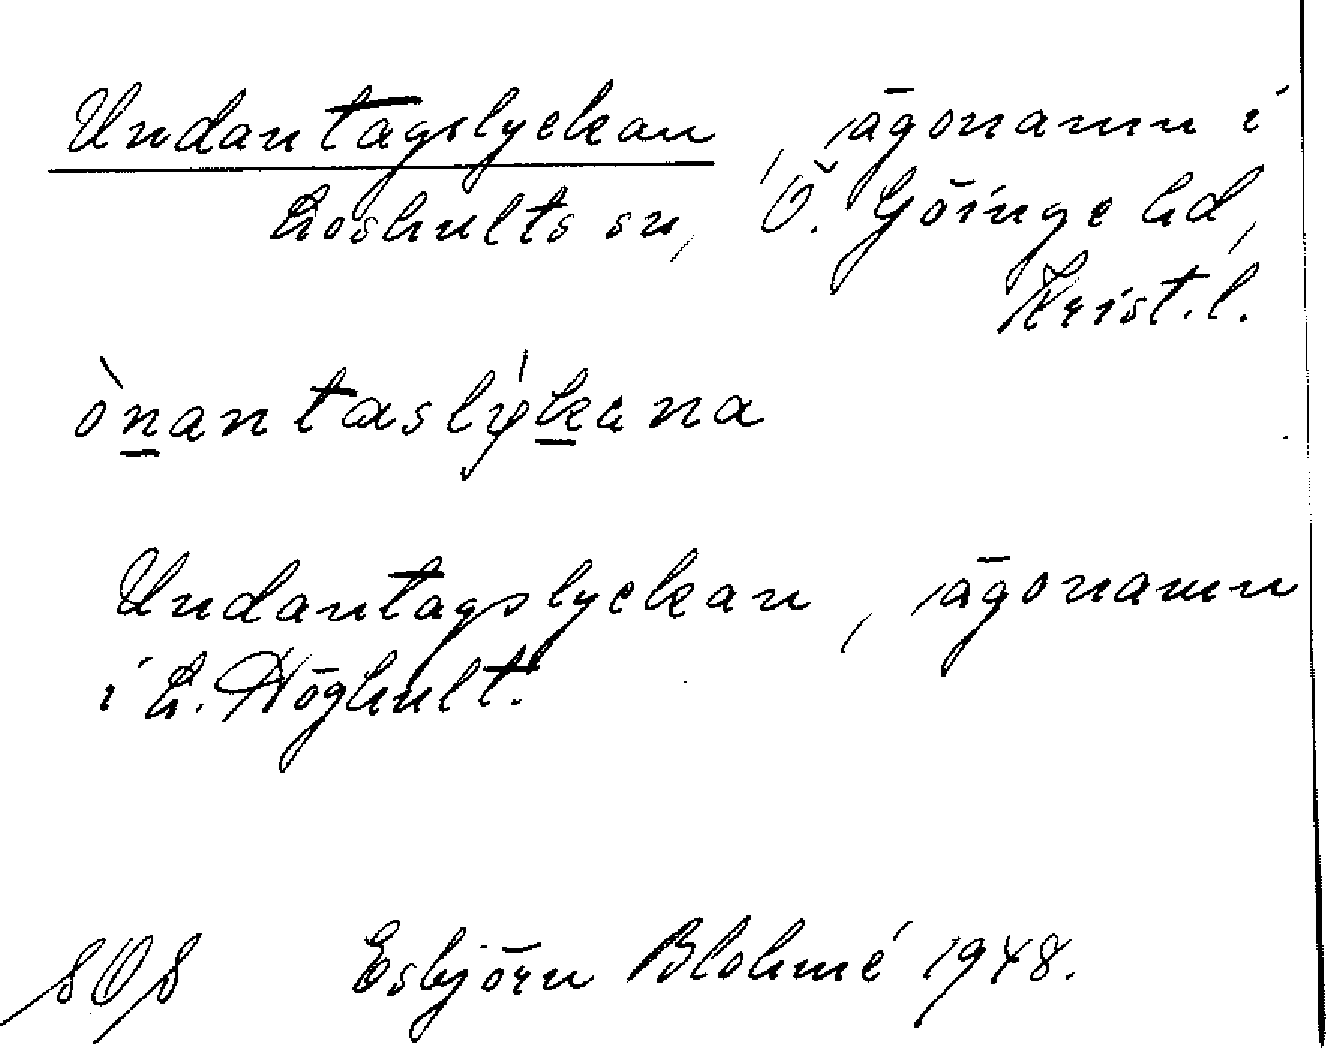 Undantagslyckan, ägonamn i
Loshults sn, Ö. Göinge hd,
Krist.l.
ònantaslýkana
Undantagslyckan, ägonamn
i L. Höghult.
Esbjörn Blohmé 1948.